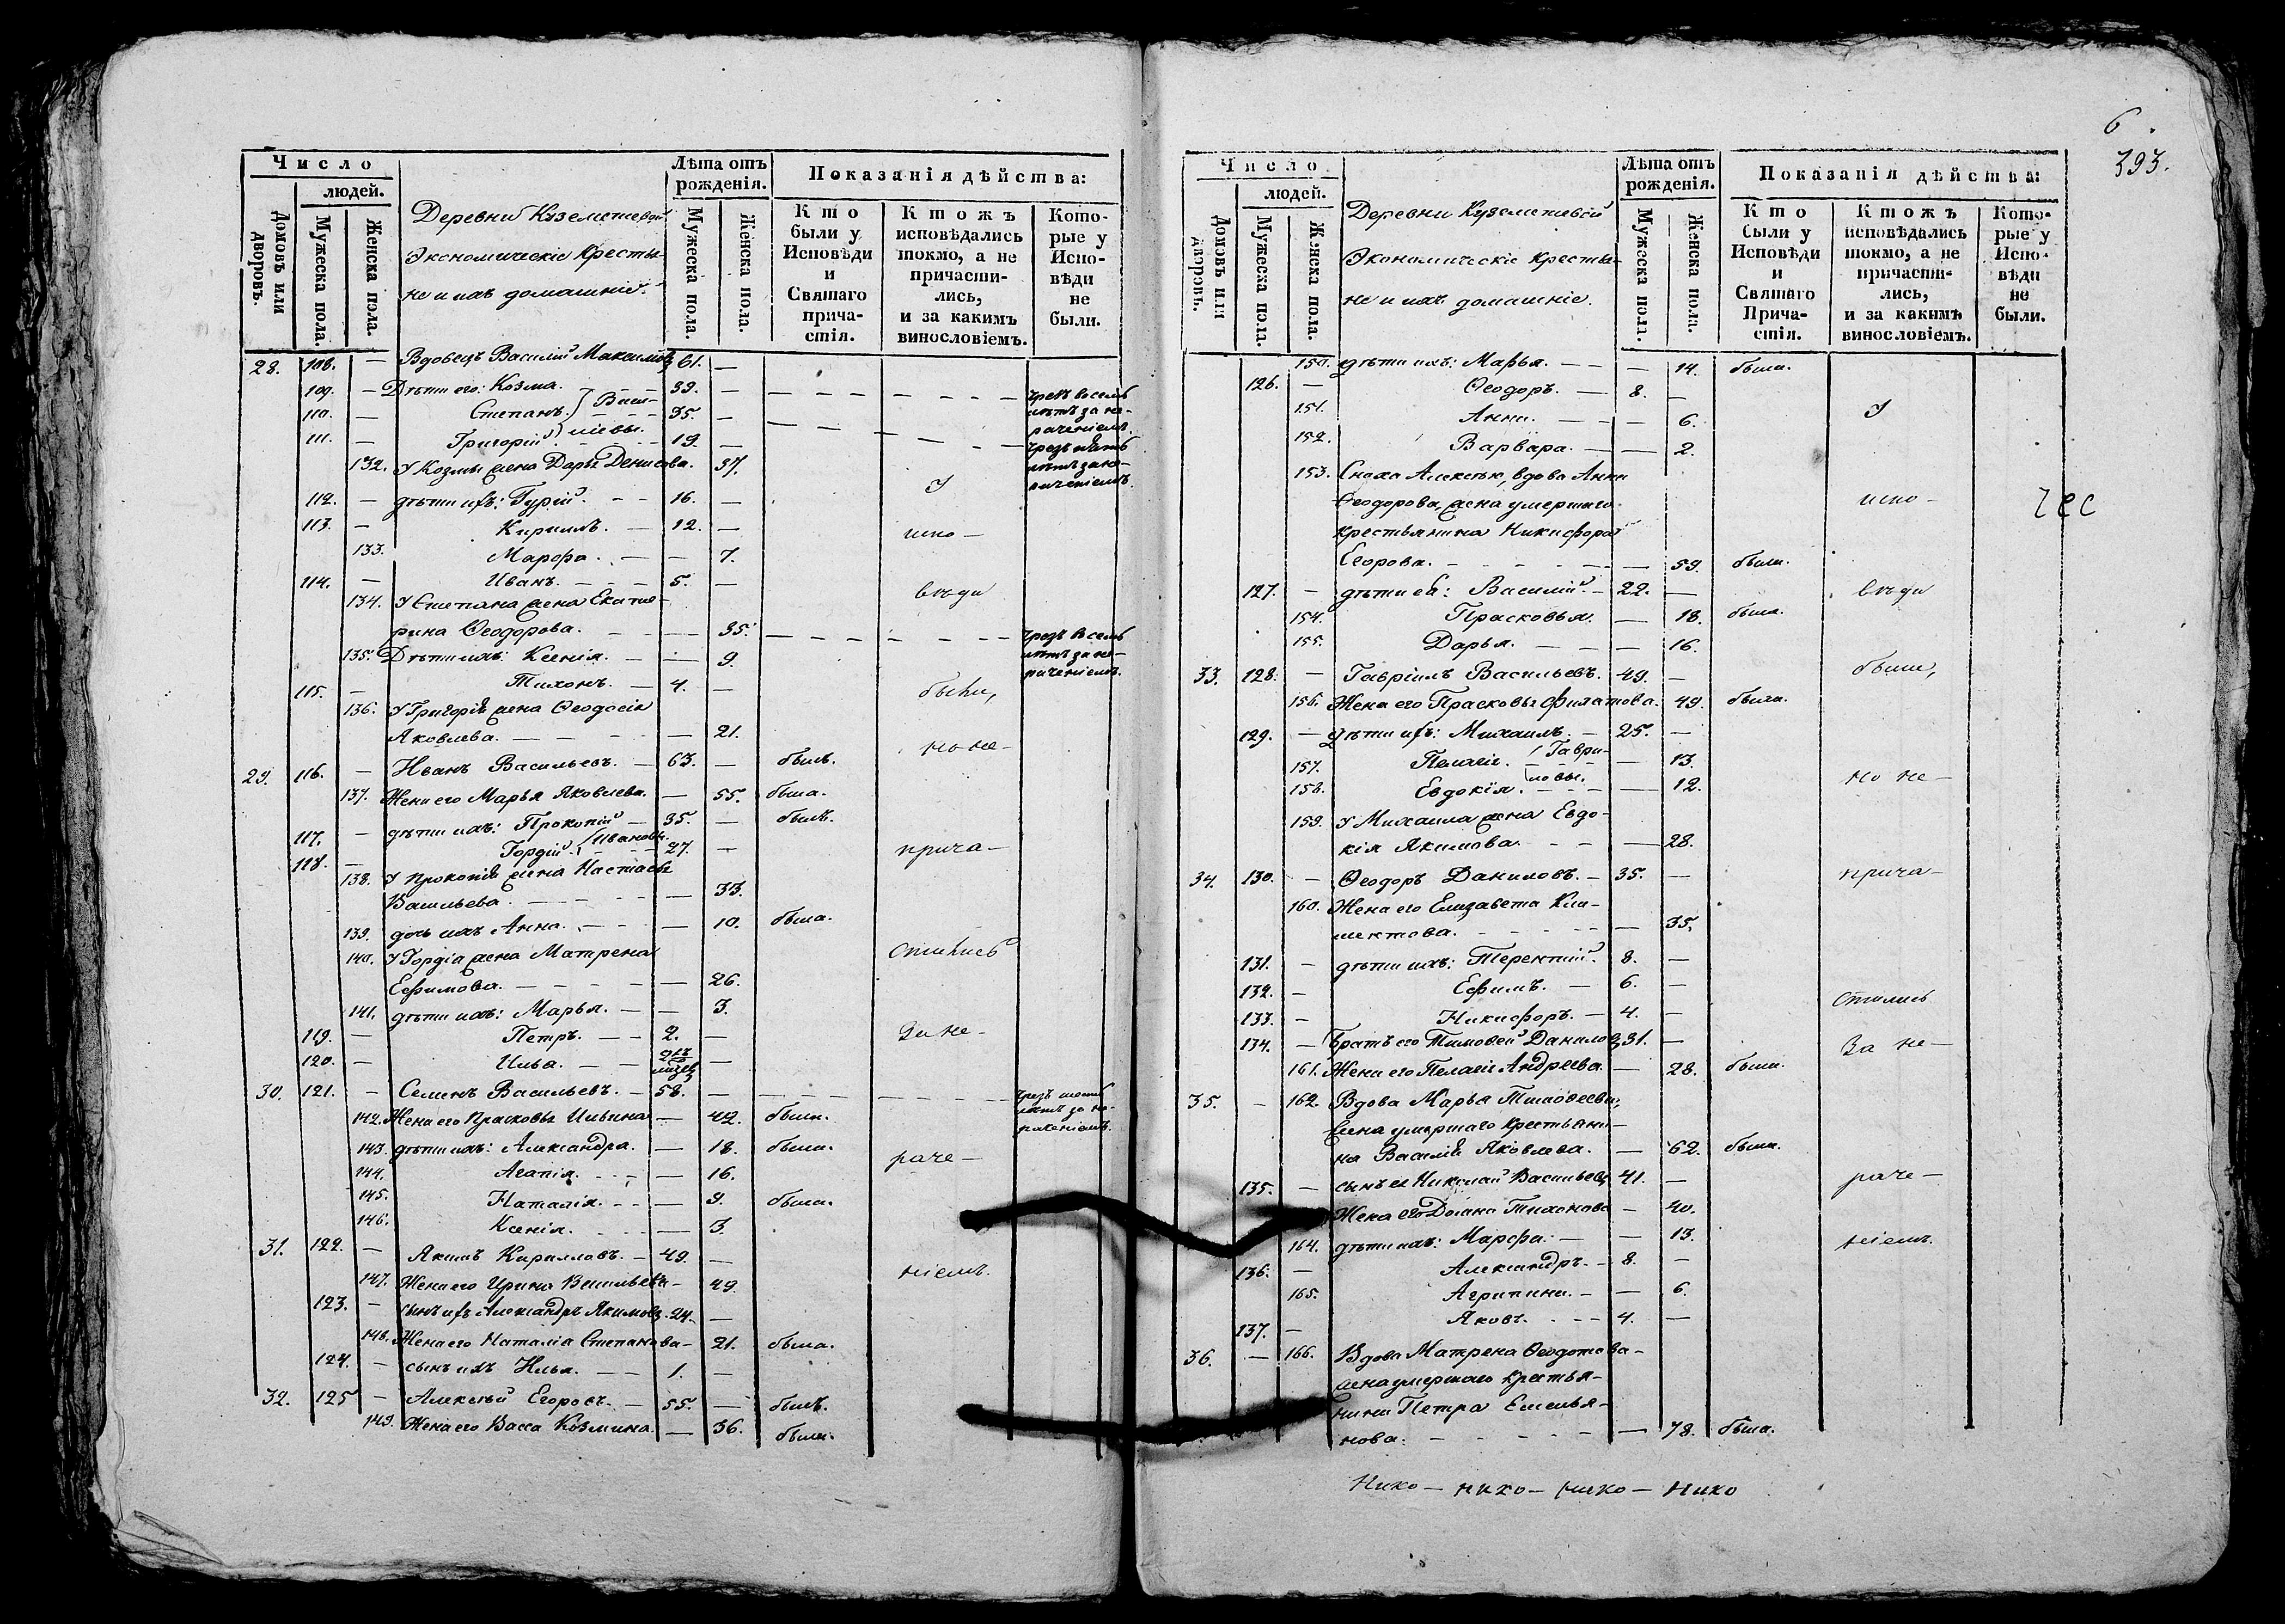 Число
людей.
Домовъ или дворовъ.
Мужеска пола.
Женска пола.
Деревни Куземетевой
Экономическіе Крестья-
не и ихъ домашніе.
Лѣта отъ рожденія.
Мужеска пола.
Женска пола.
Показанія дѣйства:
Кто были у Исповѣди и Святаго причастія.
Ктожъ исповѣдались токмо, а не причастились, и за какимъ винословіемъ.
Которые у Исповѣди не были.
28. 108. — Вдовецъ Василій Максимовъ 61. —
109. — Дѣти его: Козма. 39. — чрезъ восемь лѣтъ за не-раченіемъ.
110. — Степанъ. } Васи- 35. —
111. — Григорій }ліевы. 19. — чрезъ пять лѣтъ за не-раченіемъ.
132. У Козмы жена Дарья Денисова. 37.
112. — дѣти ихъ: Гурій. 16. —
113. — Кириллъ. 12. —
133. Марфа. — 7.
114. — Иванъ. 5. —
134. У Степана жена Екате-
рина Ѳеодорова. — 35. чрезъ восемь лѣтъ за не-раченіемъ.
135. Дѣти ихъ: Ксенія. — 9.
115. — Тихонъ. 4. —
136. У Григорія жена Ѳеодосія
Яковлева. — 21.
29. 116. — Иванъ Васильевъ. 63. — былъ.
137. Жена его Марья Яковлева. — 55. была.
117. — дѣти ихъ: Прокопій 35. — былъ.
118. — Гордій. } Ивановы. 27. —
138. У Прокопія жена Настасья
Васильева. — 33.
139. дочь ихъ Анна. — 10. была.
140. У Гордія жена Матрена
Ефимова. — 26.
141. дѣти ихъ: Марья. — 3.
119. — Петръ. 2. —
120. — Илья. —
30. 121. — Семенъ Васильевъ. 58. — чрезъ шесть лѣтъ за не-раченіемъ.
142. Жена его Прасковья Ильина — 42. была.
143. дѣти ихъ: Александра. — 18. была.
144. Агапія. — 16.
145. Наталія. — 9. была.
146. Ксенія. — 3.
31. 122. — Якимъ Кирилловъ. 49. —
147. Жена его Ирина Васильева — 49.
123. — сынъ ихъ Александръ Якимовъ. 24. —
148. Жена его Наталіа Степанова — 21. была.
124. — сынъ ихъ Илья. 1. —
32. 125 — Алексѣй Егоровъ. 55. — былъ.
149. Жена его Васса Козмина. — 36. была.
У
испо-
вѣди
были,
но не-
прича-
стились
за не-
раче-
ніемъ.
6.
393.
Число
людей.
Домовъ или дворовъ.
Мужеска пола.
Женска пола.
Деревни Куземетевой
Экономическіе Крестья-
не и ихъ домашніе.
Лѣта отъ рожденія.
Мужеска пола.
Женска пола.
Показанія дѣйства:
Кто были у Исповѣди и Святаго Причастія.
Ктожъ исповѣдались токмо, а не причастились, и за какимъ винословіемъ.
Которые у Исповѣди не были.
150. дѣти ихъ: Марья. — 14. была.
126. — Ѳеодоръ. 8. —
151. Анна. — 6.
152. Варвара. — 2.
153. Сноха Алексѣя, вдова Анна
Ѳеодорова, жена умершаго
крестьянина Никифора
Егорова. — 59. была.
127. — дѣти ея: Василій. 22. —
154. Прасковья. — 18. была.
155. Дарья. — 16.
33. 128. — Гавріилъ Васильевъ. 49. —
156. Жена его Прасковья Филатова. 49. была.
129. — дѣти ихъ: Михаилъ. 25. —
157. Пелагія. } Гаври- — 13.
158. Евдокія. } ловы. — 12.
159. У Михаила жена Евдо-
кія Якимова. — 28.
34. 130. — Ѳеодоръ Даниловъ. 35. —
160. Жена его Елизавета Кли-
ментова. — 35.
131. — дѣти ихъ: Терентій. 8. —
132. — Ефимъ. 6. —
133. — Никифоръ. 4. —
134. — Братъ его Тимоѳей Даниловъ 31. —
161. Жена его Пелагія Андреева. — 28. была.
35. — 162. Вдова Марья Тимоѳеева,
жена умершаго крестьяни-
на Василія Яковлева. — 62. была.
135. — сынъ ея Николай Васильевъ 41. —
Жена его Домна Тихонова — 40.
164. дѣти ихъ: Марфа. — 13.
136. — Александръ. 8. —
165. Агрипина. — 6.
137. — Яковъ. 4. —
36. — 166. Вдова Матрена Ѳеодотова
жена умершаго крестья-
нина Петра Емелья-
нова. — 78. была.
У
испо-
вѣди
были,
но не-
прича-
стились
за не-
раче-
ніемъ.
Нико — нико — нико — нико